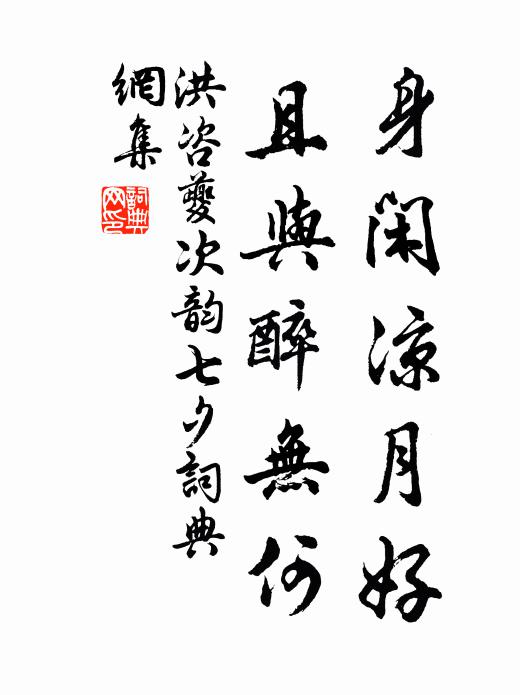 身閑涼月好
且與醉無何
洪咨夔次韵七夕詞典
網集
詞典網印